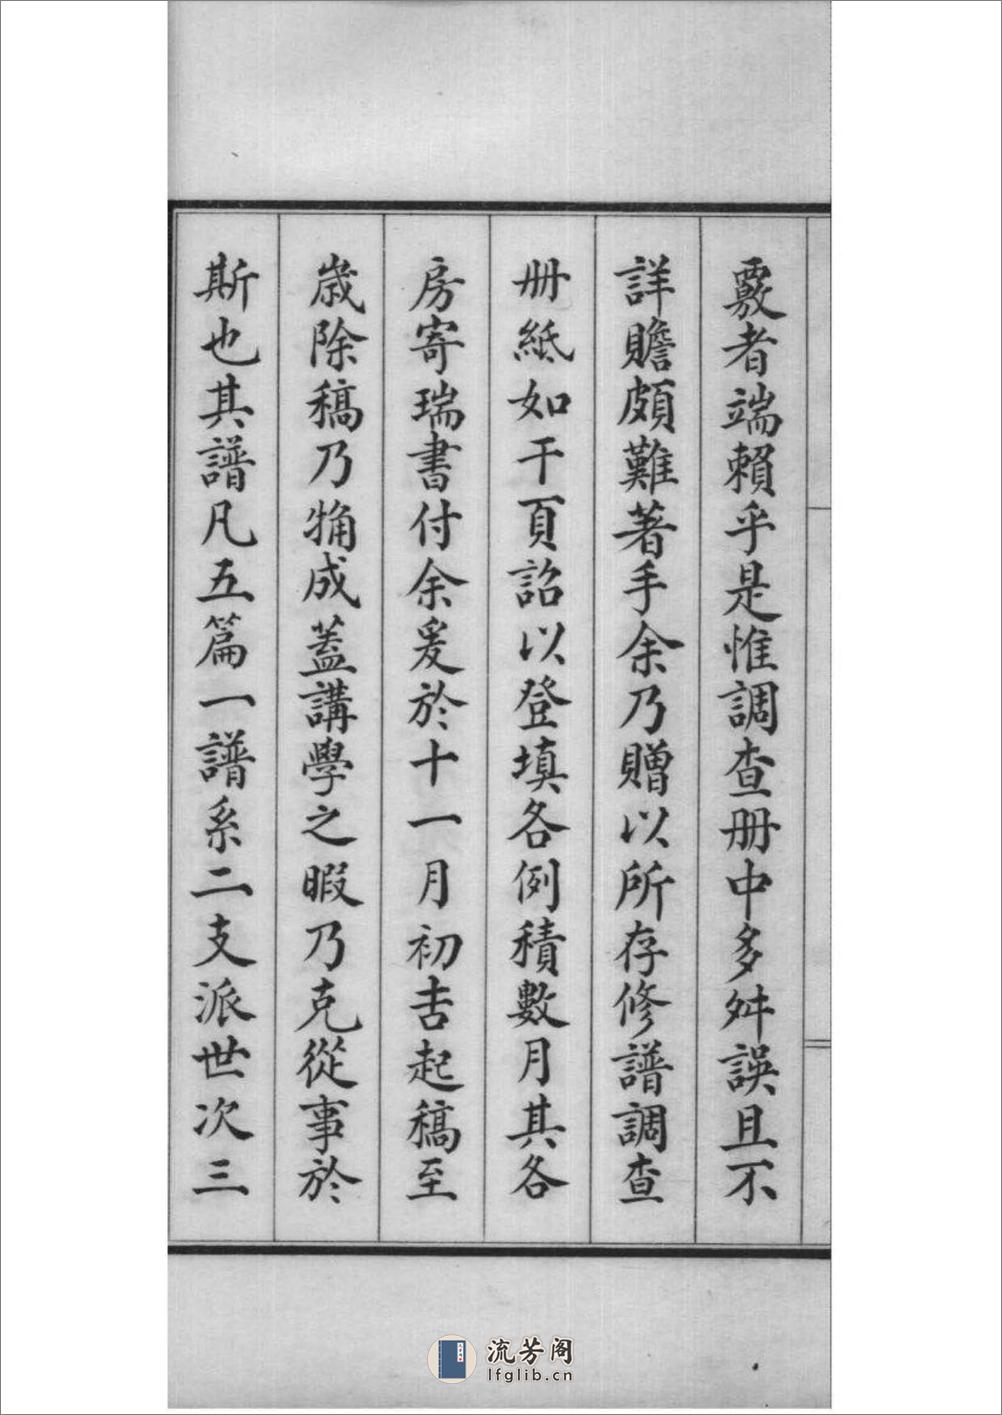 覈者端賴乎是惟調查册中多舛誤且不
詳贍頗難著手余乃贈以所存修譜調查
册紙如干頁詔以登填各例積數月其各
房寄瑞書付余爰於十一月初吉起稿至
歳除稿乃觕成蓋講學之暇乃克從事於
斯也其譜凡五篇一譜系二支派世次三
流芳阁
lfglib.cn